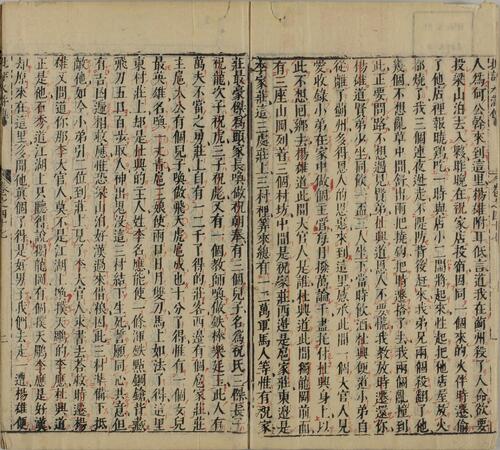 人為何公幹來到這里楊雄附耳低言道我在薊州殺了人命欲要
投梁山泊去入夥昨晚在祝家店投宿因同一個來的火伴時遷偷
了他店裡報曉鷄吃一時與店小二鬧將起來性起把他店屋放火
都燒了我三個連夜逃走不隄防背後赶來我弟兄兩個殺翻了他
幾個不想亂草中間舒出兩把撓鉤把時遷搭了去我兩個亂撞到
此正要問路不想遇見賢弟杜興道恩人不要慌我教放時遷還你
楊雄道賢弟少坐同飲一盃三人坐下當時飲酒杜興便道小弟自
從離了薊州多得恩人的恩惠來到這里感承此間一個大官人見
愛收錄小弟在家中做個主管每日撥萬論千盡托付杜興身上以
此不想回鄉去楊雄道此間大官人是誰杜興道此間獨龍岡前面
有三座山岡列着三個村坊中間是祝家莊西邊是扈家莊東邊是
李家莊這三處莊上三村裡算來總有一二萬軍馬人等惟有祝家
莊最豪傑為頭家長喚做祝朝奉有三個兒子名為祝氏三傑長子
祝龍次子祝虎三子祝彪又有一個教師喚做鐵棒欒廷玉此人有
萬夫不當之勇莊上自有一二千了得的莊客西邊有個扈家莊莊
主扈太公有個兒子喚做飛天虎扈成也十分了得惟有一個女兒
最英雄名喚一丈青扈三娘使兩口日月雙刀馬上如法了得這里
東村莊上却是杜興的主人姓李名應能使一條渾鉄點鋼鎗背藏
飛刀五口百步取人神出鬼沒這三村結下生死誓願同心共意但
有吉凶遞相救應惟恐梁山泊好漢過來借糧因此三村準備下抵
敵他如今小弟引二位到莊上見了李大官人求書去搭救時遷楊
雄又問道你那李大官人莫不是江湖上喚撲天鵰的李應杜興道
正是他石秀道江湖上只聽得說獨龍岡有個撲天鵰李應是好漢
却原來在這里多聞他真個了得是好男子我們去走一遭楊雄便